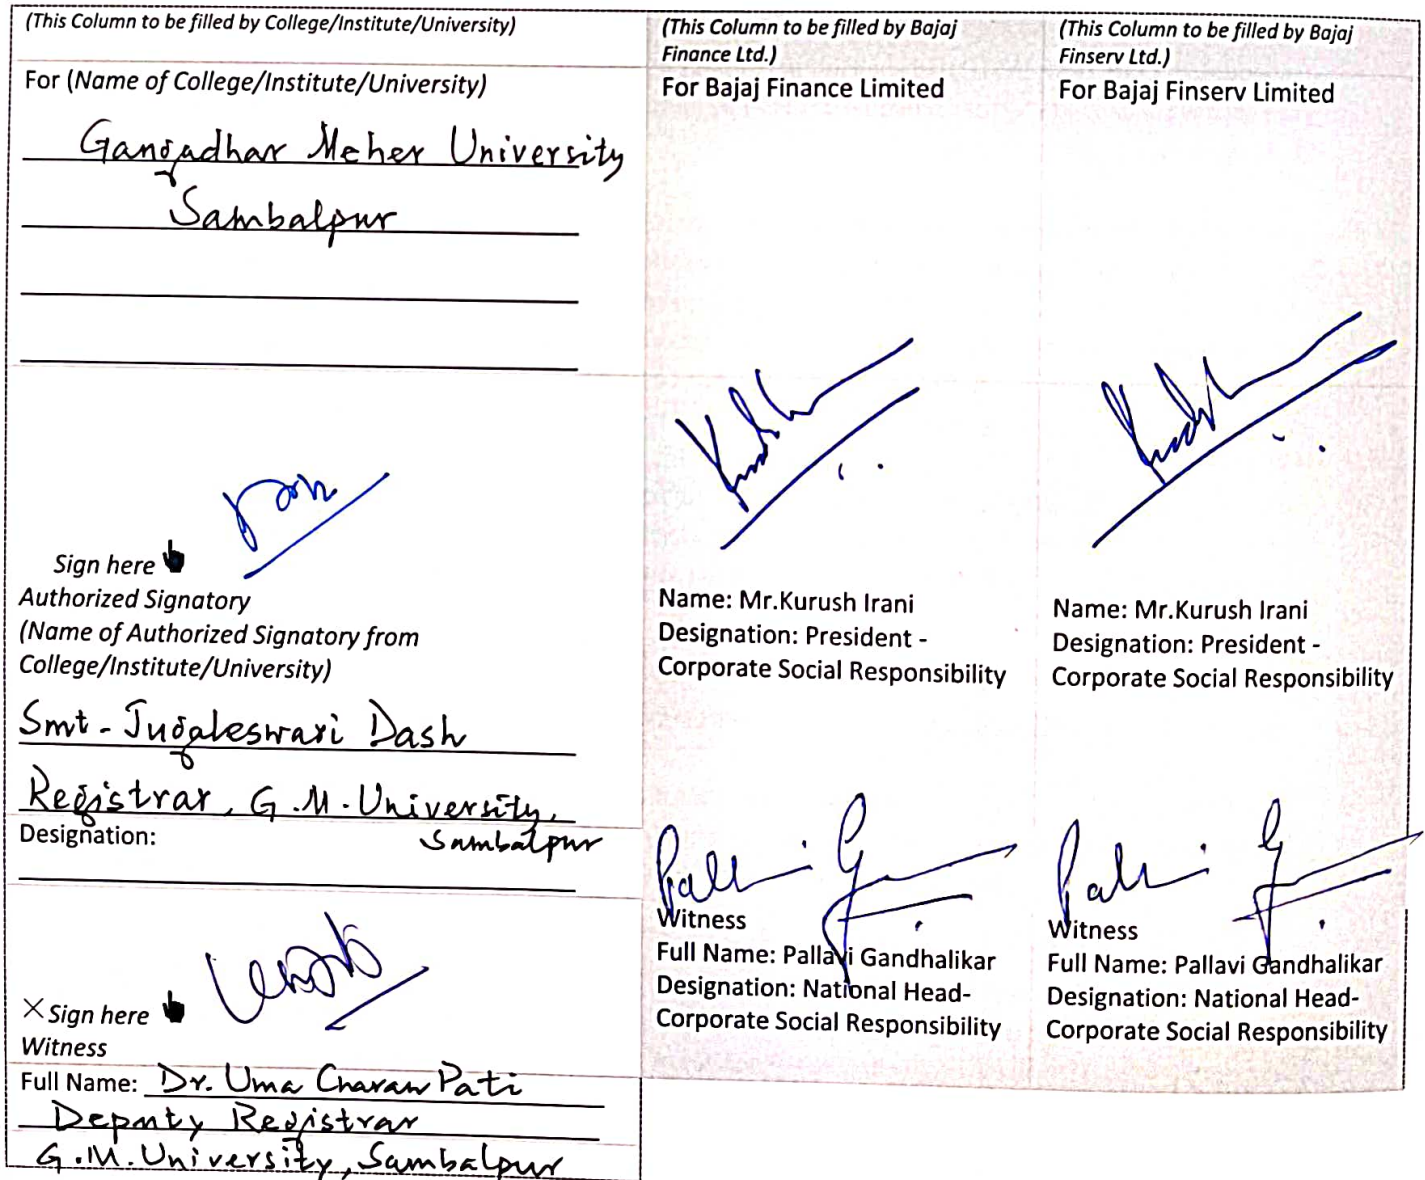 (This Column to be filled by College/Institute/University)
For (Name of College/Institute/University)
Gangadhar Meher University
Sambalpur
Sign here
Authorized Signatory
(Name of Authorized Signatory from
College/Institute/University)
Smt - Jugaleswari Dash
Registrar, G.M. University,
Sambalpur
Designation:
X Sign here
Witness
Full Name: Dr. Uma Charan Pati
Deputy Registrar
G.M. University, Sambalpur
(This Column to be filled by Bajaj
Finance Ltd.)
For Bajaj Finance Limited
Name: Mr.Kurush Irani
Designation: President -
Corporate Social Responsibility
Witness
Full Name: Pallavi Gandhalikar
Designation: National Head-
Corporate Social Responsibility
(This Column to be filled by Bajaj
Finserv Ltd.)
For Bajaj Finserv Limited
Name: Mr.Kurush Irani
Designation: President -
Corporate Social Responsibility
Witness
Full Name: Pallavi Gandhalikar
Designation: National Head-
Corporate Social Responsibility